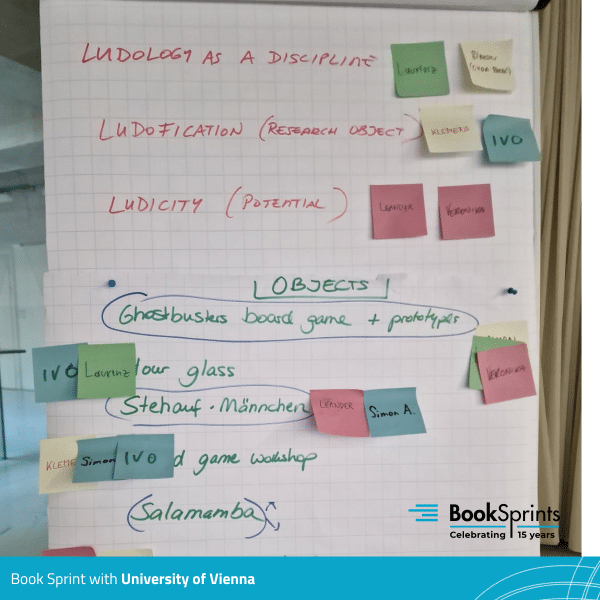 LUDOLOGY AS A DISCIPLINE
Laurenz
LUDOFICATION (RESEARCH OBJECT)
KLEMENS
IVO
LUDICITY (POTENTIAL)
LEANDER
VERONIKA
OBJECTS
Ghostbusters board game + prototypes
VERONIKA
IVO
Laurenz
our glass
Stehauf-Männchen
LEANDER
Simon A.
KLEME
Simon
IVO
d game workshop
(Salamamba)
BookSprints
Celebrating | 15 years
Book Sprint with University of Vienna